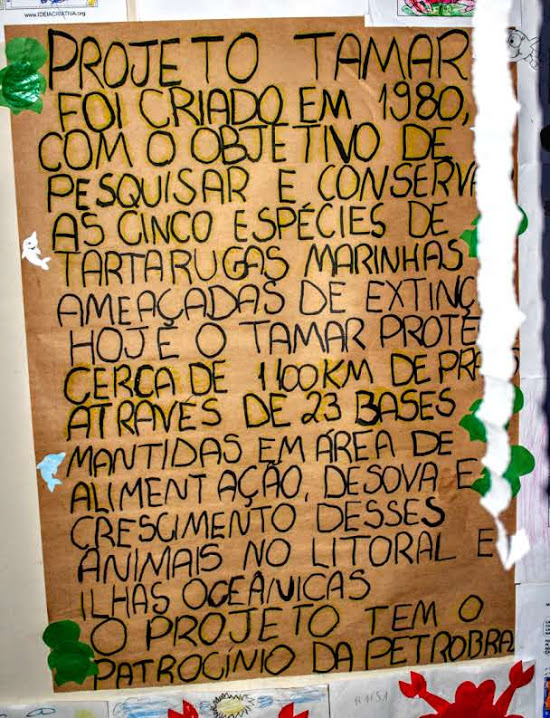 www.IDEIACRIATIVA.org
PROJETO TAMAR
FOI CRIADO EM 1980,
COM O OBJETIVO DE
PESQUISAR E CONSERVA
AS CINCO ESPÉCIES DE
TARTARUGAS MARINHAS
AMEAÇADAS DE EXTINÇ
HOJE O TAMAR PROTE
CERCA DE 1100KM DE PRA
ATRAVÉS DE 23 BASES
MANTIDAS EM ÁREA DE
ALIMENTAÇÃO, DESOVA E
CRESCIMENTO DESSES
ANIMAIS NO LITORAL E
ILHAS OCEÂNICAS
O PROJETO TEM O
PATROCÍNIO DA PETROBRA